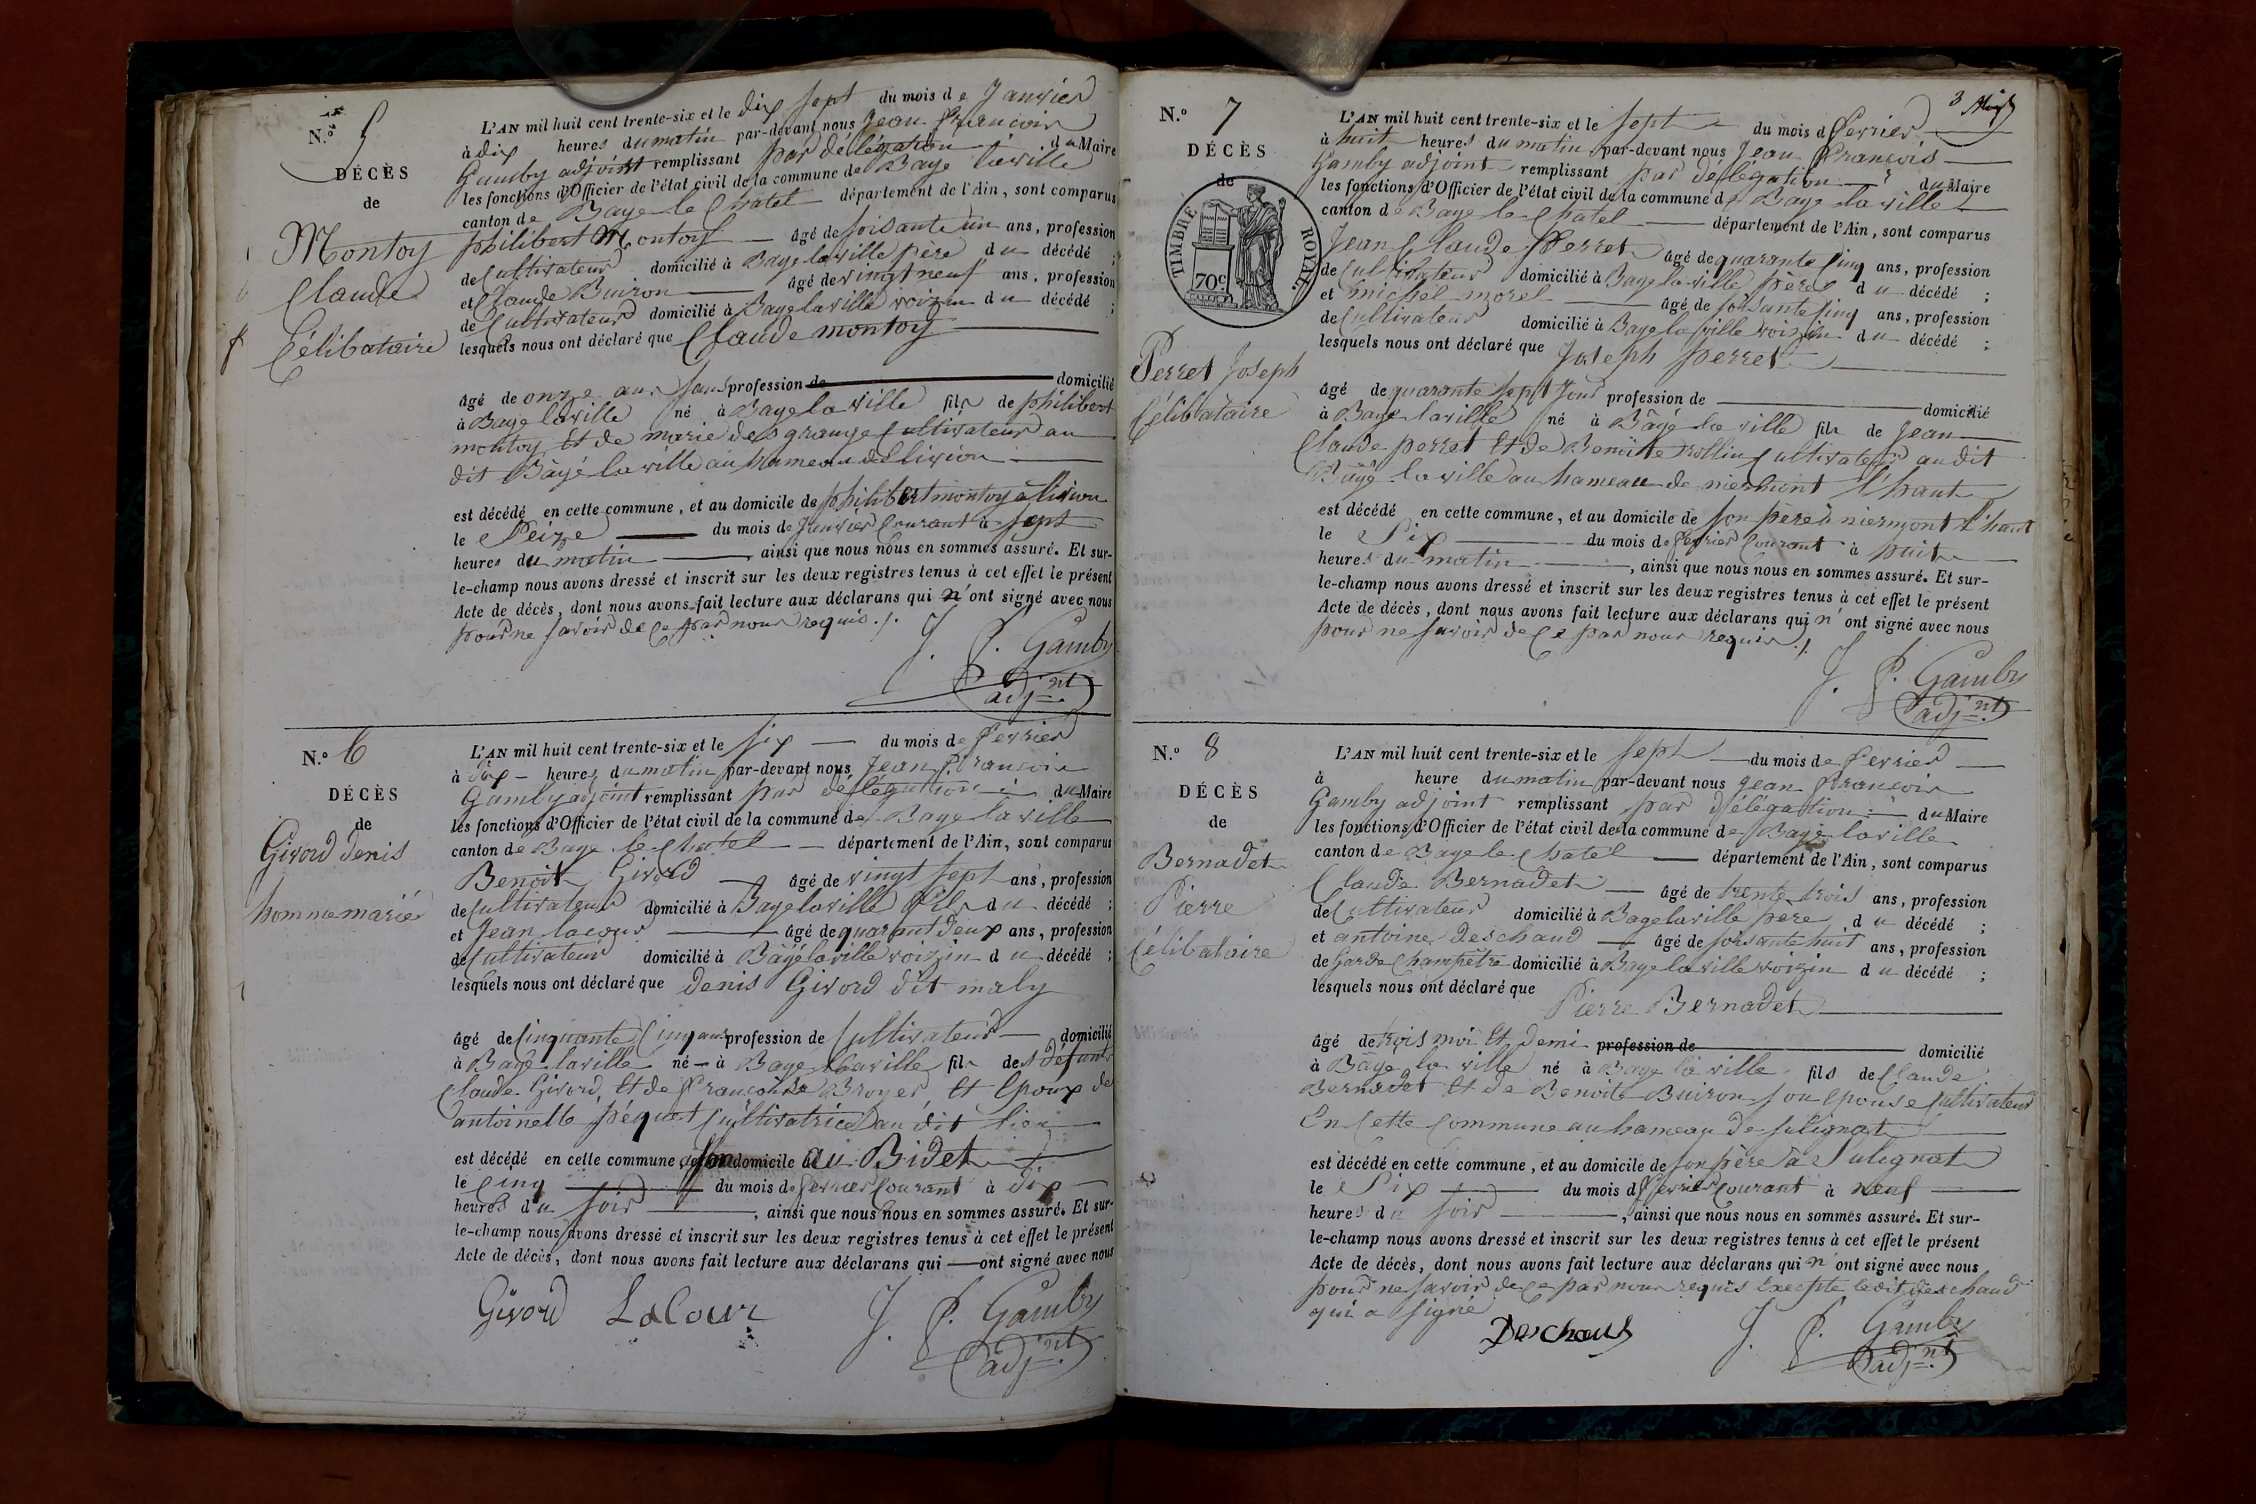 N.º 5
DÉCÈS
de
Montoy
Claude
Célibataire
L'AN mil huit cent trente-six et le dix sept du mois de Janvier
à dix heures du matin par-devant nous Jean François
Gamby adjoint remplissant par délégation du Maire
les fonctions d'Officier de l'état civil de la commune de Bagé laville
canton de Bage le Chatel département de l'Ain, sont comparus
philibert Montoy âgé de soisante un ans, profession
de Cultivateur domicilié à Bage laville père du décédé ;
et Claude Buiron âgé de vingt neuf ans, profession
de Cultivateur domicilié à Bage laville voizin du décédé ;
lesquels nous ont déclaré que Claude montoy
âgé de onze ans sans profession de domicilié
à Bagé laville né à Bage la ville fils de philibert
montoy Et de marie desgrange Cultivateur au
dit Bâgé la ville au hameau de
est décédé en cette commune, et au domicile de philibert montoy à
le Seize du mois de Janvier Courant à sept
heures du matin, ainsi que nous nous en sommes assuré. Et sur-
le-champ nous avons dressé et inscrit sur les deux registres tenus à cet effet le présent
Acte de décès, dont nous avons fait lecture aux déclarans qui n'ont signé avec nous
pour ne savoir de ce par nous requis ./.
J. F. Gamby
adj.nt
N.º 6
DÉCÈS
de
Givord denis
homme marié
L'AN mil huit cent trente-six et le six du mois de fevrier
à dix heures du matin par-devant nous Jean françois
Gamby adjoint remplissant par délégation du Maire
les fonctions d'Officier de l'état civil de la commune de Bage la ville
canton de Bage le Chatel département de l'Ain, sont comparus
Benoit Givord âgé de vingt sept ans, profession
de Cultivateur domicilié à Bage laville fils du décédé ;
et Jean lacour âgé de quarant deux ans, profession
de Cultivateur domicilié à Bâgé laville voizin du décédé ;
lesquels nous ont déclaré que denis Givord dit maly
âgé de Cinquante Cinq ans profession de Cultivateur domicilié
à Bage laville né à Bage laville fils des défunts
Claude Givord, Et de françoise Broyer, et Epoux de
antoinette péquet Cultivatrice au dit lieu
est décédé en cette commune son domicile au Bidet
le Cinq du mois de fevrier Courant à dix
heures du soir, ainsi que nous nous en sommes assuré. Et sur-
le-champ nous avons dressé et inscrit sur les deux registres tenus à cet effet le présent
Acte de décès, dont nous avons fait lecture aux déclarans qui ont signé avec nous
Givord LaCour J. F. Gamby
adj.nt
3
N.º 7
DÉCÈS
de
TIMBRE ROYAL
70c
Perret Joseph
Célibataire
L'AN mil huit cent trente-six et le sept du mois de fevrier
à huit heures du matin par-devant nous Jean françois
Gamby adjoint remplissant par délégation du Maire
les fonctions d'Officier de l'état civil de la commune de Bage la ville
canton de Bage le Chatel département de l'Ain, sont comparus
Jean Claude Perret âgé de quarante Cinq ans, profession
de Cultivateur domicilié à Bage la ville père du décédé ;
et michel morel âgé de soisante Cinq ans, profession
de Cultivateur domicilié à Bage la ville voizin du décédé ;
lesquels nous ont déclaré que Joseph perret
âgé de quarante sept Jour profession de domicilié
à Bage laville né à Bâgé la ville fils de Jean
Claude perret Et de Benoite Rollin Cultivateur au dit
Bâgé la ville au hameau de l'haut
est décédé en cette commune, et au domicile de son père à niermont l'haut
le Six du mois de fevrier Courant à huit
heures du matin, ainsi que nous nous en sommes assuré. Et sur-
le-champ nous avons dressé et inscrit sur les deux registres tenus à cet effet le présent
Acte de décès, dont nous avons fait lecture aux déclarans qui n'ont signé avec nous
pour ne savoir de ce par nous requis ./.
J. F. Gamby
adj.nt
N.º 8
DÉCÈS
de
Bernadet
Pierre
Célibataire
L'AN mil huit cent trente-six et le sept du mois de fevrier
à heure du matin par-devant nous Jean françois
Gamby adjoint remplissant par délégation du Maire
les fonctions d'Officier de l'état civil de la commune de Bagé laville
canton de Bage le Chatel département de l'Ain, sont comparus
Claude Bernadet âgé de trente trois ans, profession
de Cultivateur domicilié à Bage laville pere du décédé ;
et antoine deschaud âgé de soisante huit ans, profession
de Garde Champêtre domicilié à Bage la ville voizin du décédé ;
lesquels nous ont déclaré que
Pierre Bernadet
âgé de trois moi Et demi profession de domicilié
à Bâge la ville né à Bage la ville fils de Claude
Bernadet Et de Benoite Buiron son Epouse Cultivateur
En Cette Commune au hameau de sulignat
est décédé en cette commune, et au domicile de son père à Sulegnat
le Six du mois de fevrier Courant à neuf
heures du soir, ainsi que nous nous en sommes assuré. Et sur-
le-champ nous avons dressé et inscrit sur les deux registres tenus à cet effet le présent
Acte de décès, dont nous avons fait lecture aux déclarans qui n'ont signé avec nous
pour ne savoir de ce par nous requis Excepte ledit deschaud
qui a signé
Deschaud J. F. Gamby
adj.nt